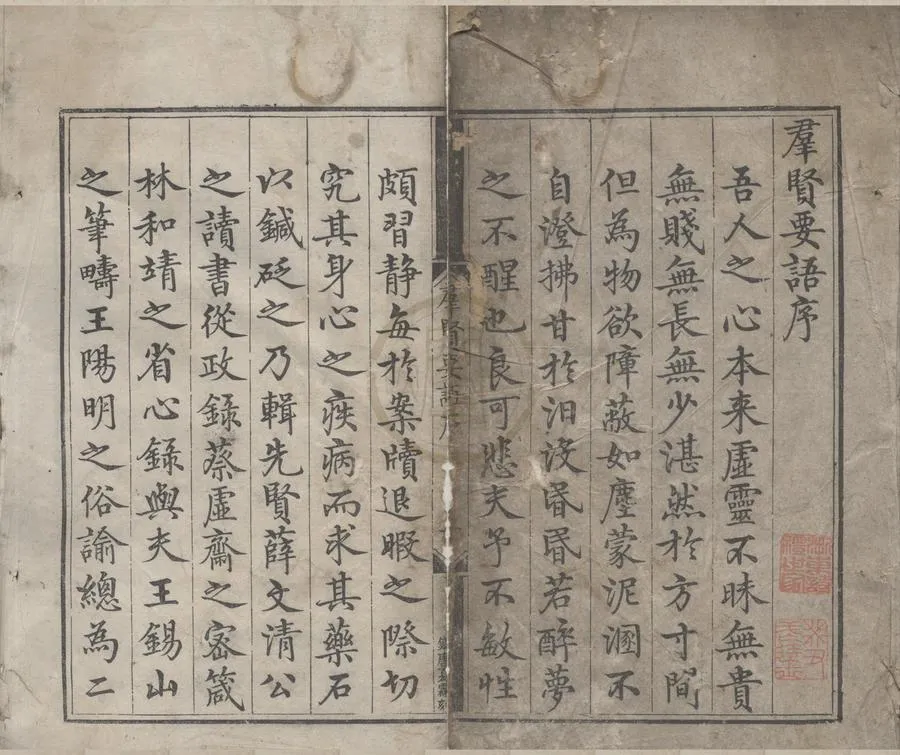 羣賢要語序
吾人之心本來虛靈不昧無貴
無賤無長無少湛然於方寸間
但為物欲障蔽如塵蒙泥溷不
自澄拂甘於汨没昬昬若醉夢
之不醒也良可悲夫予不敏性
羣賢要語序
頗習静每於案牘退暇之際切
究其身心之疾病而求其藥石
以鍼砭之乃輯先賢薛文清公
之讀書從政錄蔡虛齋之密箴
林和靖之省心錄與夫王錫山
之筆疇王陽明之俗諭總為二